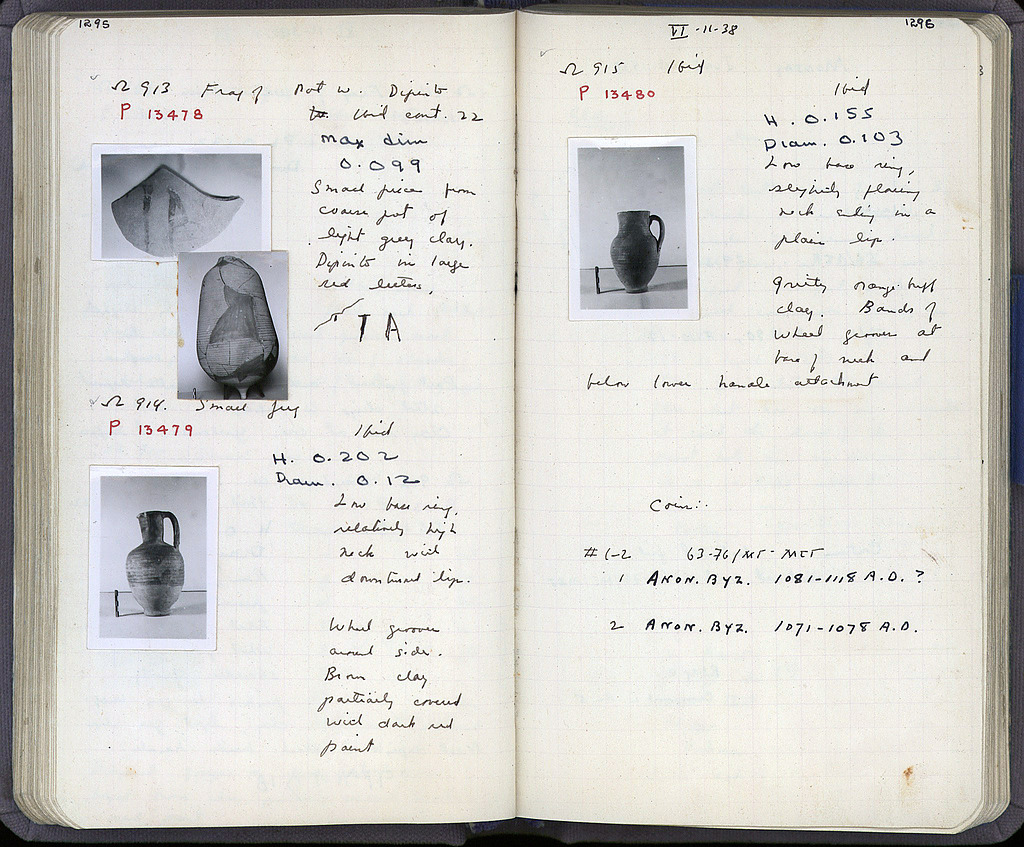 1295
Ω 913 Frag of Pot w. Dipinto
P 13478
Ibid cont. 22
max dim
0.099
Small piece from
coarse pot of
light grey clay.
Dipinto in large
red letters,
TA
Ω 914. Small jug
P 13479
Ibid
H. 0.202
Diam. 0.12
Low base ring,
relatively high
neck with
downturned lip.
Wheel grooves
around side.
Brown clay
partially covered
with dark red
paint
1296
VI-11-38
Ω 915 Ibid
P 13480
Ibid
H. 0.155
Diam. 0.103
Low base ring,
slightly flaring
neck ending in a
plain lip.
Gritty orange buff
clay. Bands of
wheel grooves at
base of neck and
below lower handle attachment
Coins:
#1-2 63-76/ΜΓ-ΜΣΤ
1 ANON. BYZ. 1081-1118 A.D.?
2 ANON. BYZ. 1071-1078 A.D.